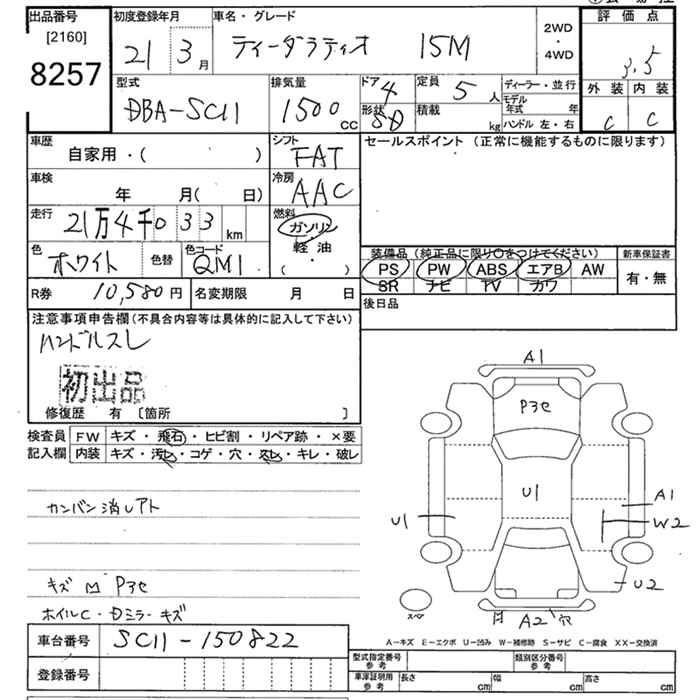 出品番号
[2160]
8257
初度登録年月
21 3 月
車名・グレード
ティーダラティオ 15M
2WD
・
4WD
評価点
3.5
外装 内装
C C
型式
DBA-SC11
排気量
1500 cc
ドア 4
形状 SD
定員 5 人
積載 kg
ディーラー・並行
モデル年式 年
ハンドル 左・右
車歴
自家用・( )
シフト
FAT
セールスポイント (正常に機能するものに限ります)
車検
年 月( 日)
冷房
AAC
走行 21万4千033 km
燃料
ガソリン
・
軽油
・
( )
色 ホワイト
色替
色コード QM1
装備品 (純正品に限り○をつけてください)
PS PW ABS エアB AW
SR ナビ TV カワ
新車保証書
有・無
R券 10,580円
名変期限 月 日
後日品
注意事項申告欄(不具合内容等は具体的に記入して下さい)
ハンドルスレ
初出品
修復歴 有 [箇所 ]
検査員
記入欄
FW キズ・飛石・ヒビ割・リペア跡・×要
内装 キズ・汚レ・コゲ・穴・スレ・キレ・破レ
カンバン消しアト
キズ M Pヨゴ
ホイルC・Dミラーキズ
A1
U1
U1
A1
W2
U2
A2 穴
スペア
A-キズ E-エクボ U-凹み W-補修跡 S-サビ C-腐食 XX-交換済
車台番号 SC11-150822
登録番号
型式指定番号
参考
類別区分番号
参考
車庫証明用
参考
長さ cm
幅 cm
高さ cm